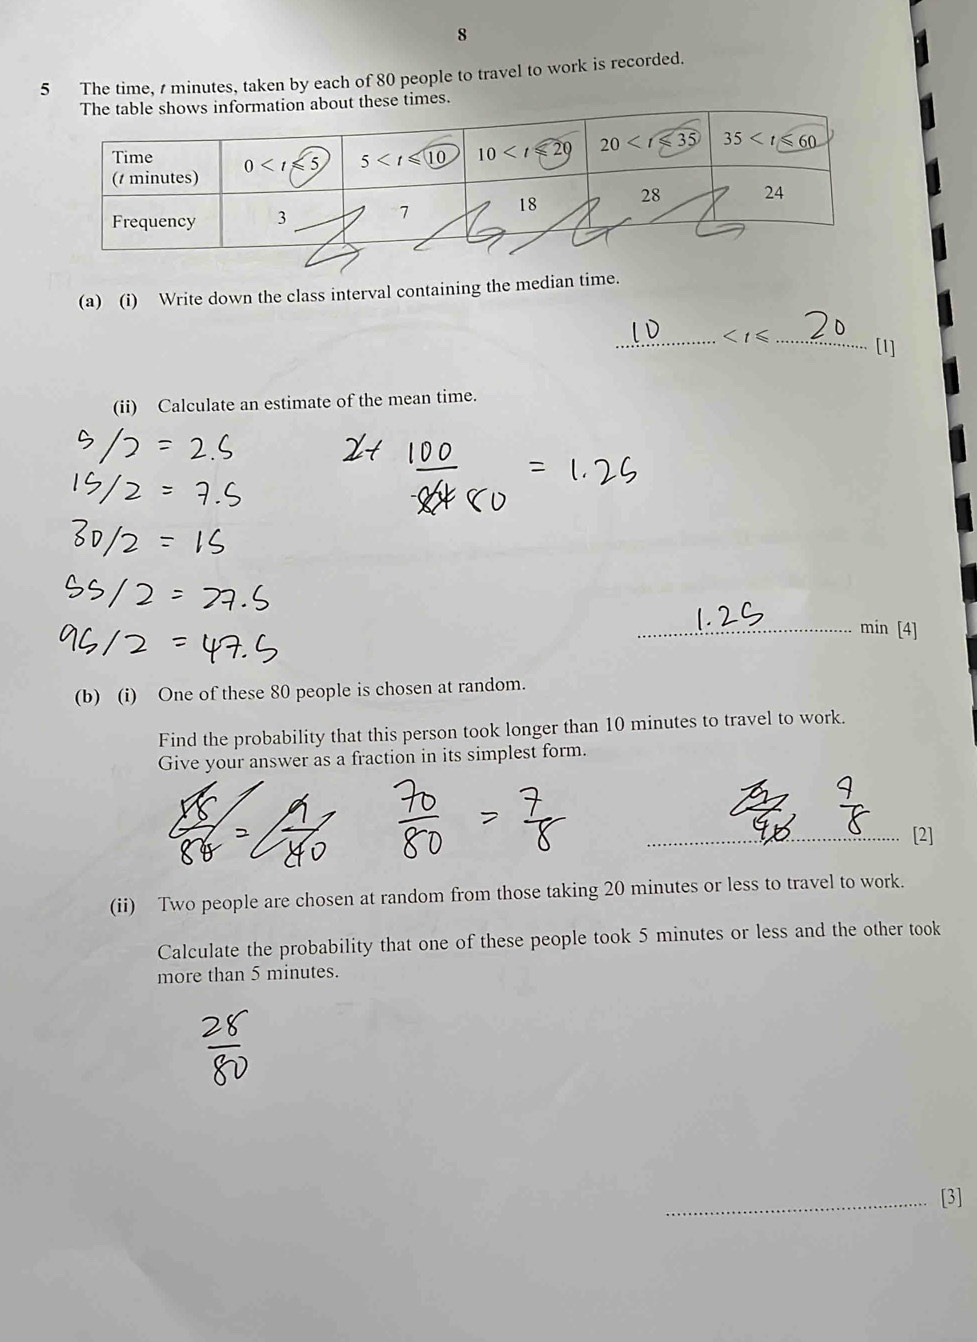 8
5 The time, t minutes, taken by each of 80 people to travel to work is recorded.
The table shows information about these times.
Time (t minutes) 0 < t ⩽ 5 5 < t ⩽ 10 10 < t ⩽ 20 20 < t ⩽ 35 35 < t ⩽ 60
Frequency 3 7 18 28 24
(a) (i) Write down the class interval containing the median time.
10 < t ⩽ 20 [1]
(ii) Calculate an estimate of the mean time.
5/2 = 2.5
15/2 = 7.5
30/2 = 15
55/2 = 27.5
95/2 = 47.5
100/80 = 1.25
1.25 min [4]
(b) (i) One of these 80 people is chosen at random.
Find the probability that this person took longer than 10 minutes to travel to work.
Give your answer as a fraction in its simplest form.
70/80 = 7/8
/8 [2]
(ii) Two people are chosen at random from those taking 20 minutes or less to travel to work.
Calculate the probability that one of these people took 5 minutes or less and the other took
more than 5 minutes.
28/80
[3]